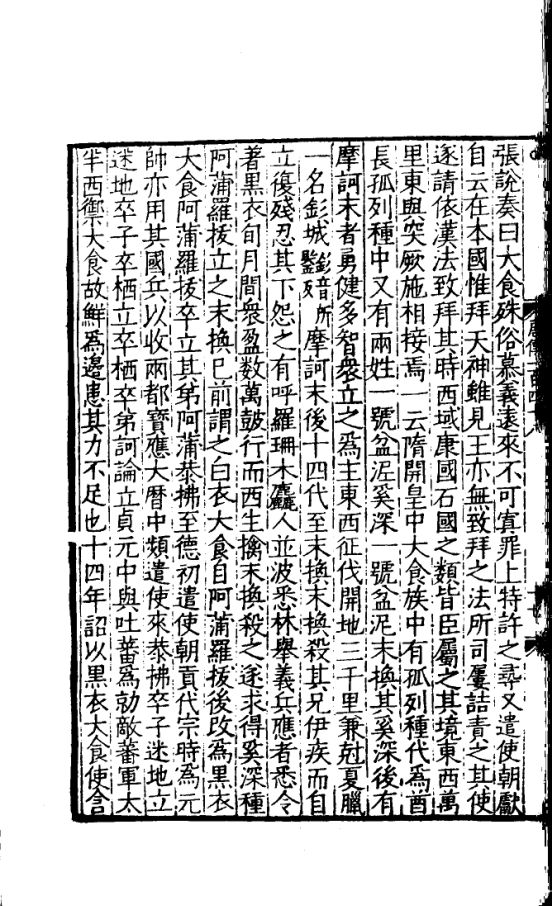 張說奏曰大食殊俗慕義遠來不可寘罪上特許之尋又遣使朝獻
自云在本國惟拜天神雖見王亦無致拜之法所司屢詰責之其使
遂請依漢法致拜其時西域康國石國之類皆臣屬之其境東西萬
里東與突厥施相接焉一云隋開皇中大食族中有孤列種代為酋
長孤列種中又有兩姓一號盆泥奚深一號盆泥末換其奚深後有
摩訶末者勇健多智衆立之為主東西征伐開地三千里兼尅夏臘
一名釤城釤音所鑒反摩訶末後十四代至末換末換殺其兄伊疾而自
立復殘忍其下怨之有呼羅珊木麤人並波悉林舉義兵應者悉令
著黑衣旬月間衆盈数萬鼓行而西生擒末換殺之遂求得奚深種
阿蒲羅拔立之末換已前謂之白衣大食自阿蒲羅拔後改為黑衣
大食阿蒲羅拔卒立其弟阿蒲恭拂至德初遣使朝貢代宗時為元
帥亦用其國兵以收兩都寶應大曆中頻遣使來恭拂卒子迷地立
迷地卒子卒栖立卒栖卒弟訶論立貞元中與吐蕃為勍敵蕃軍太
半西禦大食故鮮為邊患其力不足也十四年詔以黑衣大食使含